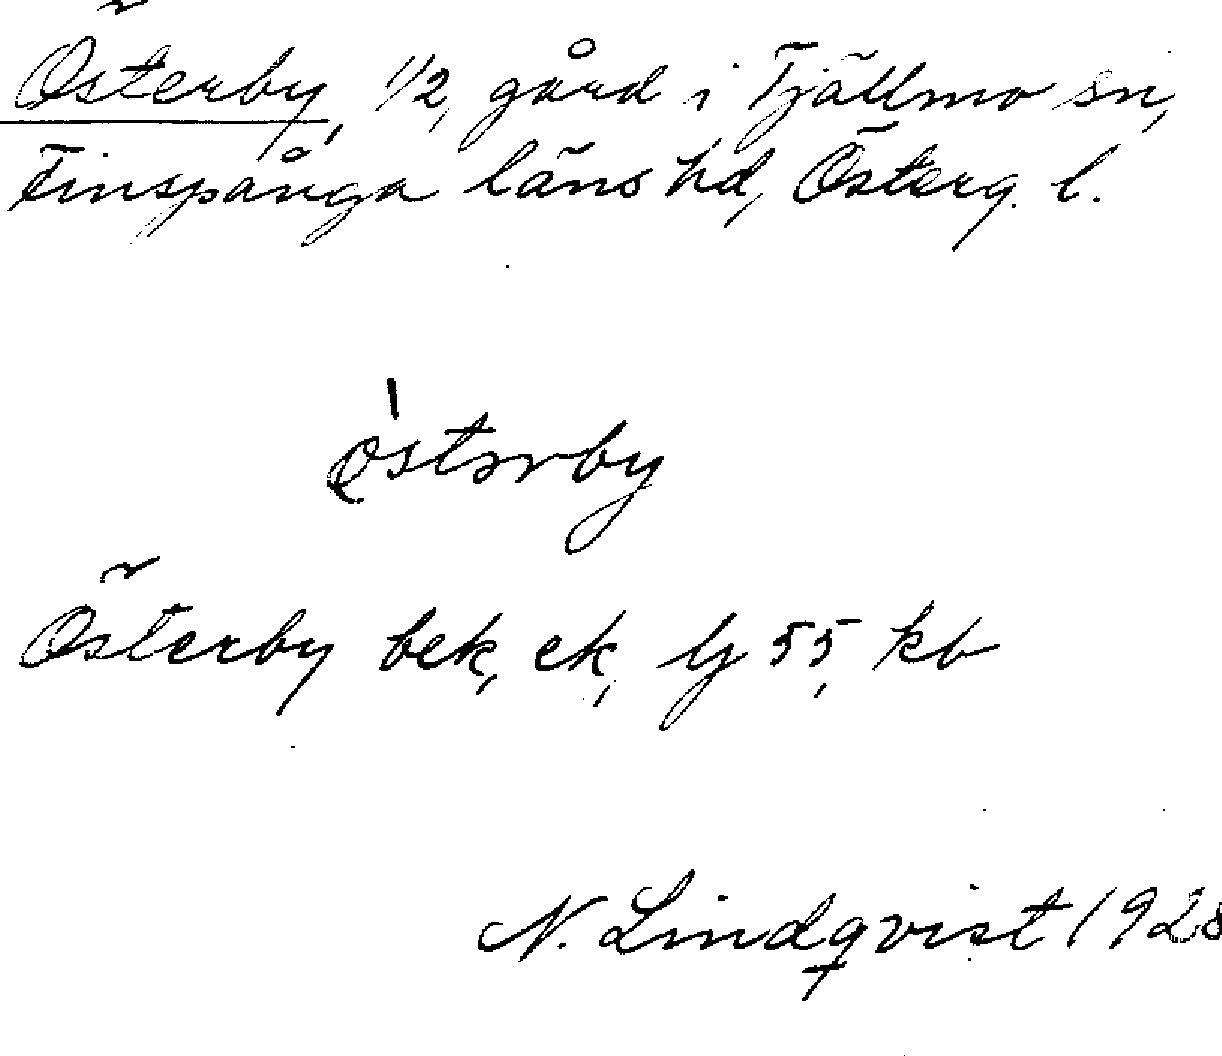 Österby, 1/2, gård i Tjällmo sn,
Finspånga läns hd, Österg. l.
Österby bek, ek, lj 55, kb
N. Lindqvist 1928